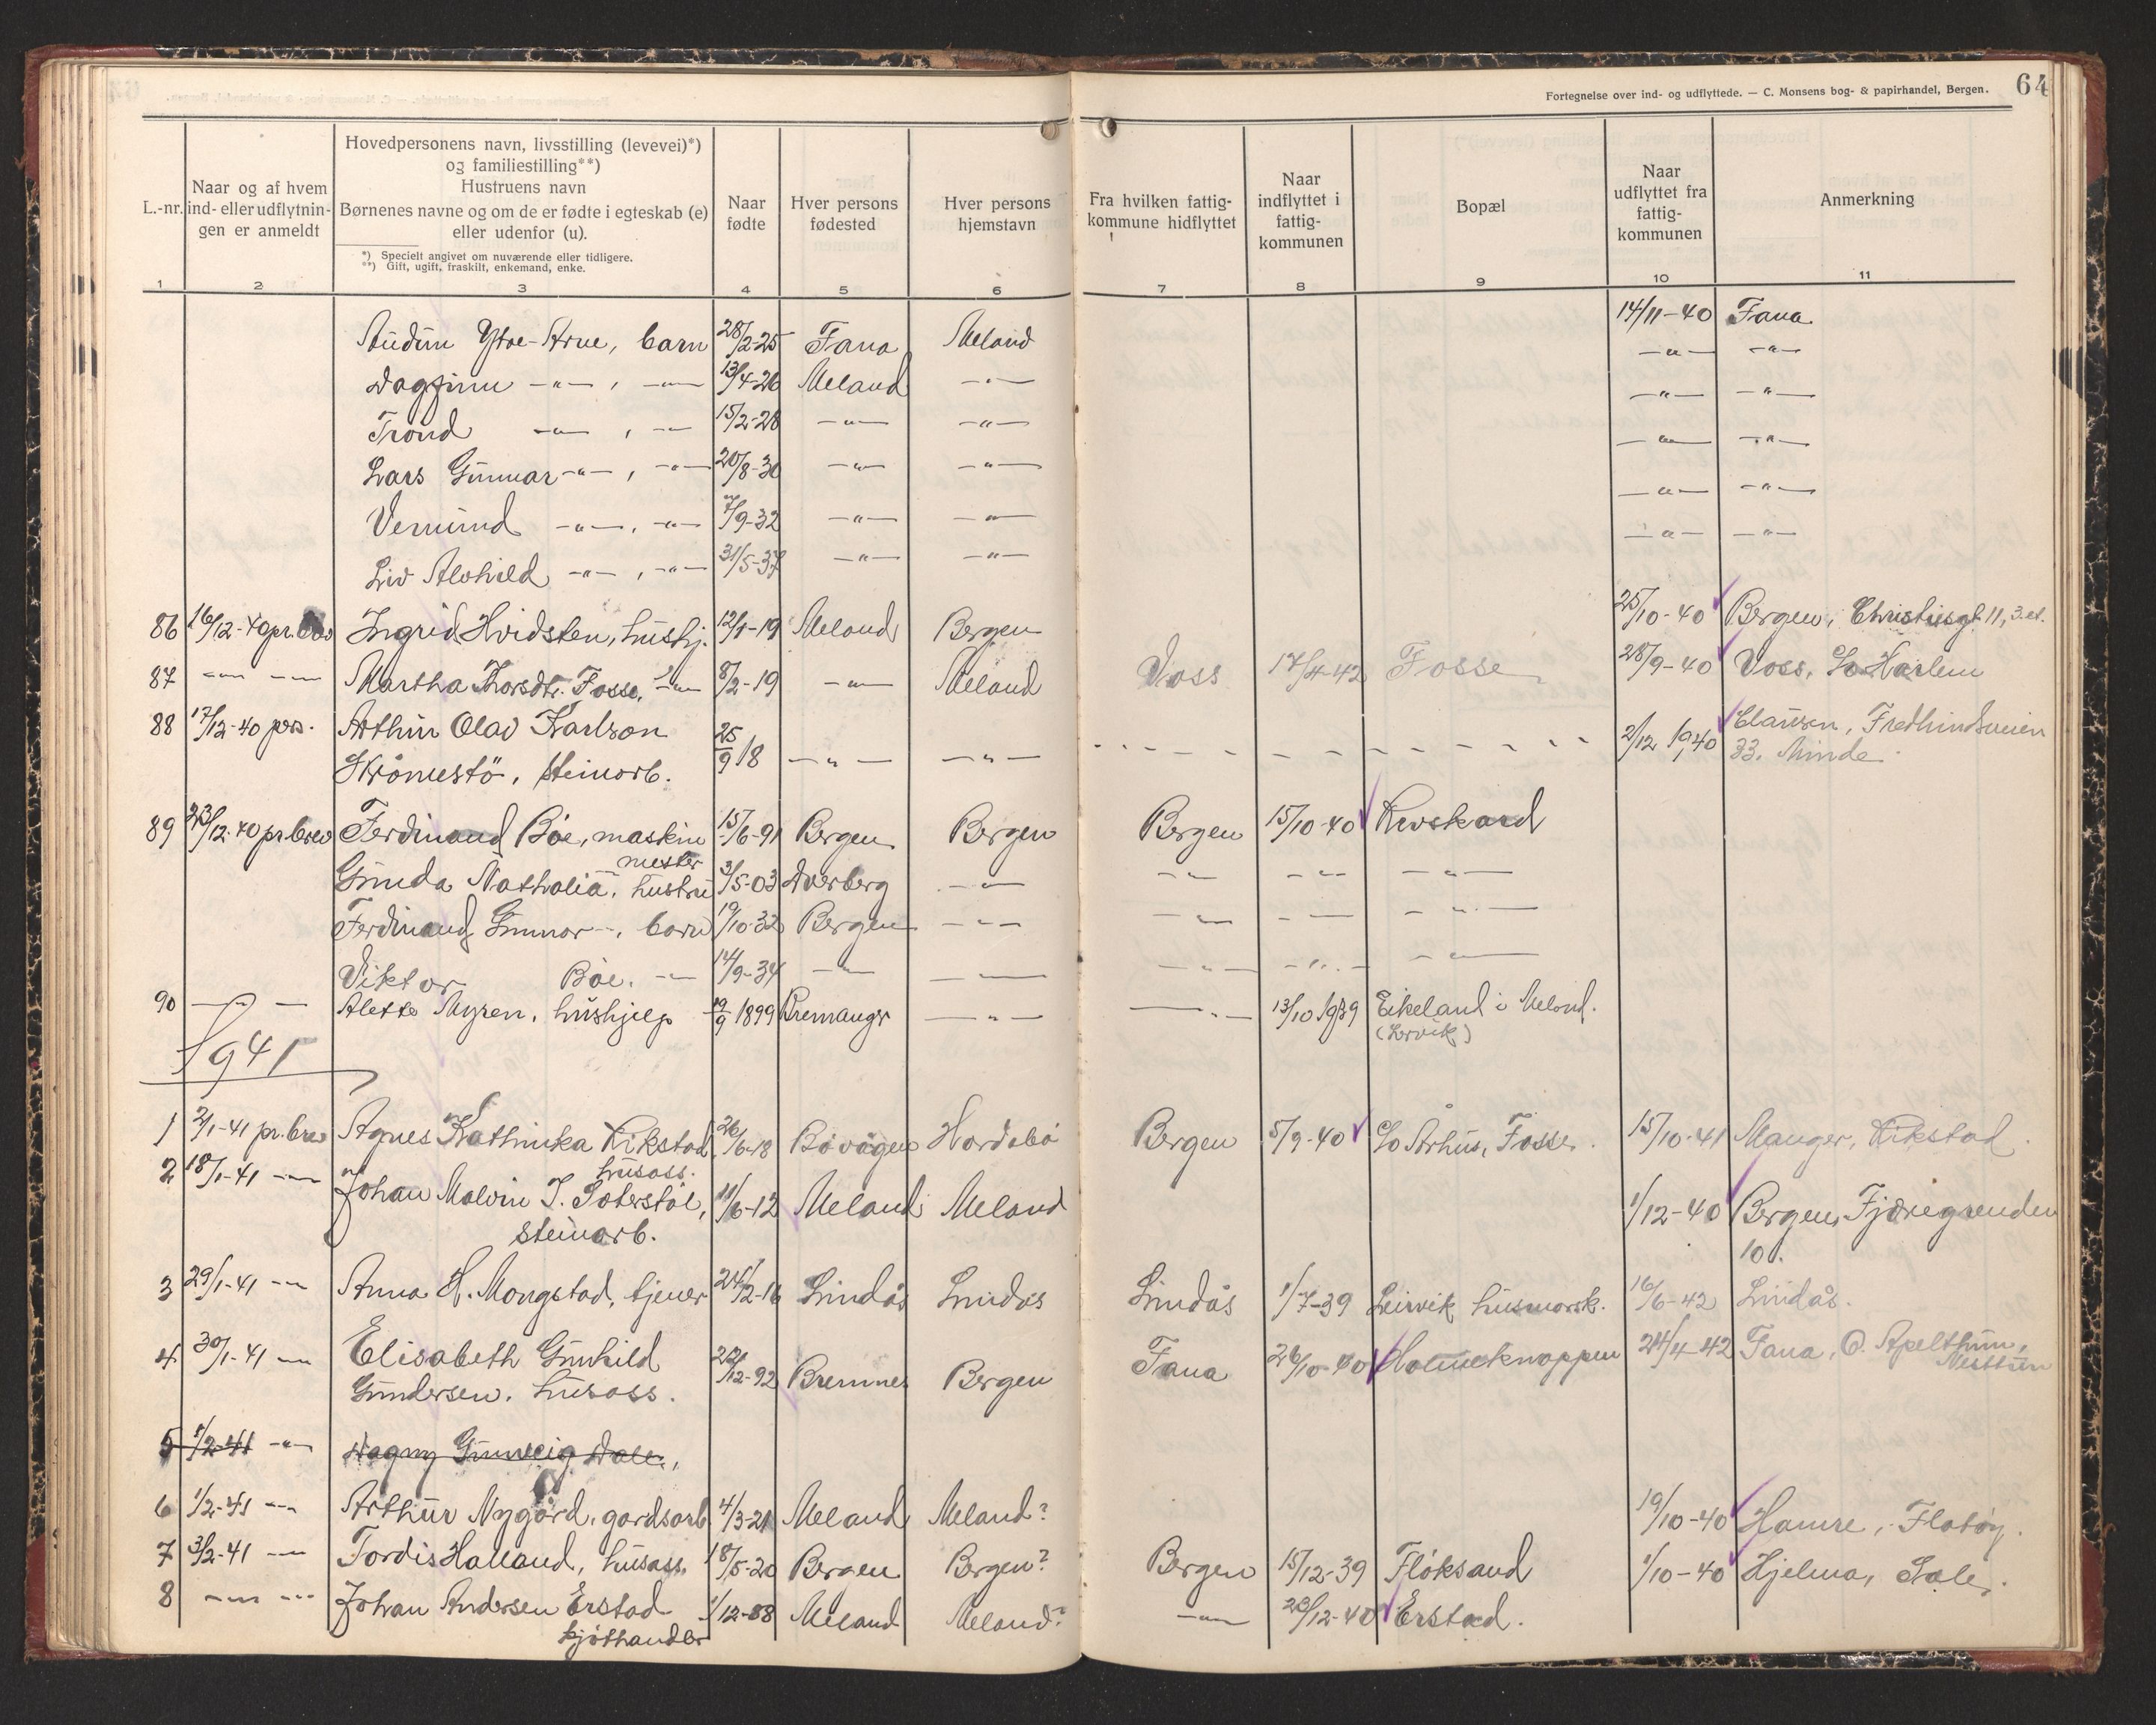 Fortegnelse over ind- og udflyttede. — C. Monsens bog- & papirhandel, Bergen. 64
L.-nr. Naar og af hvem ind- eller udflytnin-gen er anmeldt
Hovedpersonens navn, livsstilling (levevei)*)
og familiestilling**)
Hustruens navn
Børnenes navne og om de er fødte i egteskab (e)
eller udenfor (u).
*) Specielt angivet om nuværende eller tidligere.
**) Gift, ugift, fraskilt, enkemand, enke.
Naar fødte
Hver persons fødested
Hver persons hjemstavn
Fra hvilken fattig-kommune hidflyttet
Naar indflyttet i fattig-kommunen
Bopæl
Naar udflyttet fra fattig-kommunen
Anmerkning
1 2 3 4 5 6 7 8 9 10 11
Audun Ytre-Arne, barn 28/2-25 Fana Meland 14/11-40 Fana
Dagfinn -"-, -"- 13/4-26 Meland -"- -"- -"-
Trond -"-, -"- 15/2-28 -"- -"- -"- -"-
Lars Gunnar -"-, -"- 20/8-30 -"- -"- -"- -"-
Vermund -"-, -"- 7/9-32 -"- -"- -"- -"-
Liv Alvhild -"-, -"- 31/5-37 -"- -"- -"- -"-
86 16/12-40 pr. Ingrid Hvidsten, hushj. 12/1-19 Meland Bergen 25/10-40 Bergen, Christiesgt. 11, 3. et.
87 -"- -"- Martha Thorsdtr. Fosse, -"- 8/2-19 -"- Meland Voss 17/4-42 Fosse 28/9-40 Voss, c/o Harlem
88 17/12-40 pers. Arthur Olav Karlson 25/9 18 -"- -"- 2/12 1940 Clausen, Fredlundsveien
Krånestö, steinarb. 33. Minde
89 23/12-40 pr. brev Ferdinand Böe, maskin 15/6-91 Bergen Bergen Bergen 15/10-40 Rosskard
mester
Gunda Nathalia, hustru 3/5-03 Averberg -"- -"- -"- -"-
Ferdinand Gunnar -, barn 19/10-32 Bergen -"- -"- -"- -"-
Viktor Böe, -"- 14/9-34 -"- -"- -"- -"- -"-
90 -"- Alette Myren, hushjelp 19/9 1899 Bremanger -"- -"- 13/10 1939 Eikeland i Meland.
(Lervik)
1941
1 2/1-41 pr. brev Agnes Kathinka Kikstad 26/6-18 Bövågen Hordabö Bergen 5/9-40 c/o Århus, Fosse. 15/10-41 Manger, Kikstad.
husass.
2 18/1-41 -"- Johan Malvin J. Sæterstöl, 11/6-12 Meland Meland 1/12-40 Bergen, Fjæregrenden
steinarb. 10.
3 29/1-41 -"- Anna H. Mongstad, tjener 24/2-16 Lindås Lindås Lindås 1/7-39 Leirvik husmorsk. 16/6-42 Lindås.
4 30/1-41 -"- Elisabeth Gunhild 22/12-92 Bremnes Bergen Fana 26/10-40 Holmeknappen 24/4-42 Fana, O. Apelthun,
Gundersen, husass. Nesttun
5 1/2-41 -"- Dagny Gunveig Dale,
6 1/2-41 -"- Arthur Nygård, gardsarb. 4/3-21 Meland Meland? 19/10-40 Hamre, Flatöy.
7 3/2-41 -"- Tordis Halland, husass. 18/5-20 Bergen Bergen? Bergen 15/12-39 Flöksand 1/10-40 Hjelma, Sale.
8 -"- -"- Johan Andersen Erstad 1/12-88 Meland Meland? -"- 23/12-40 Erstad.
kjöthandler